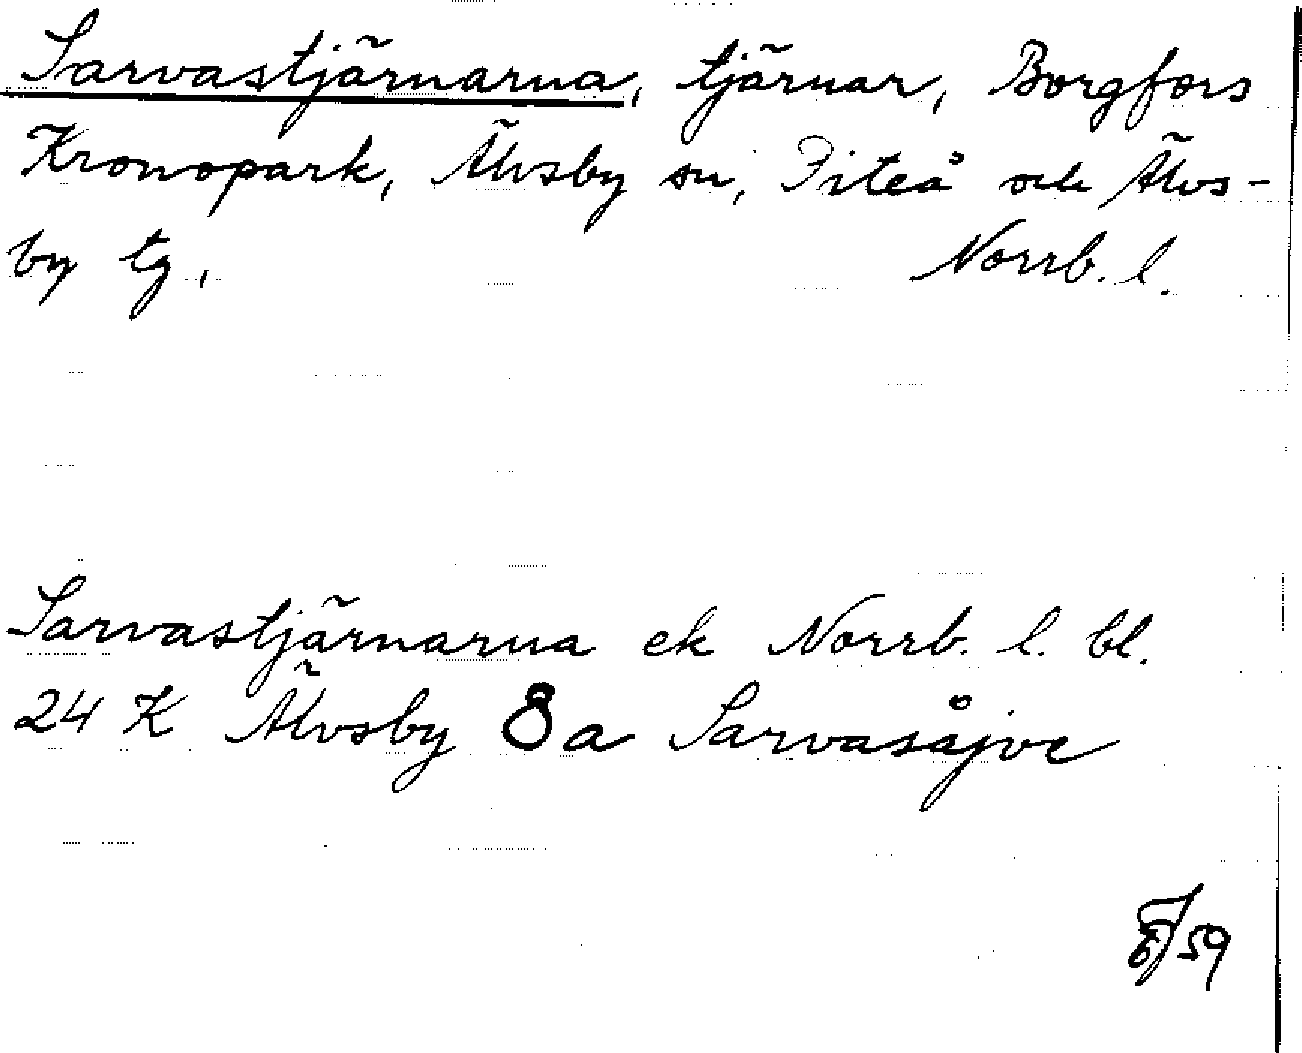 Sarvastjärnarna, tjärnar, Borgfors
Kronopark, Älvsby sn, Piteå och Älvs-
by tg, Norrb. l.
Sarvastjärnarna ek Norrb. l. bl.
24 K Älvsby 8 a Sarvasåjve
59